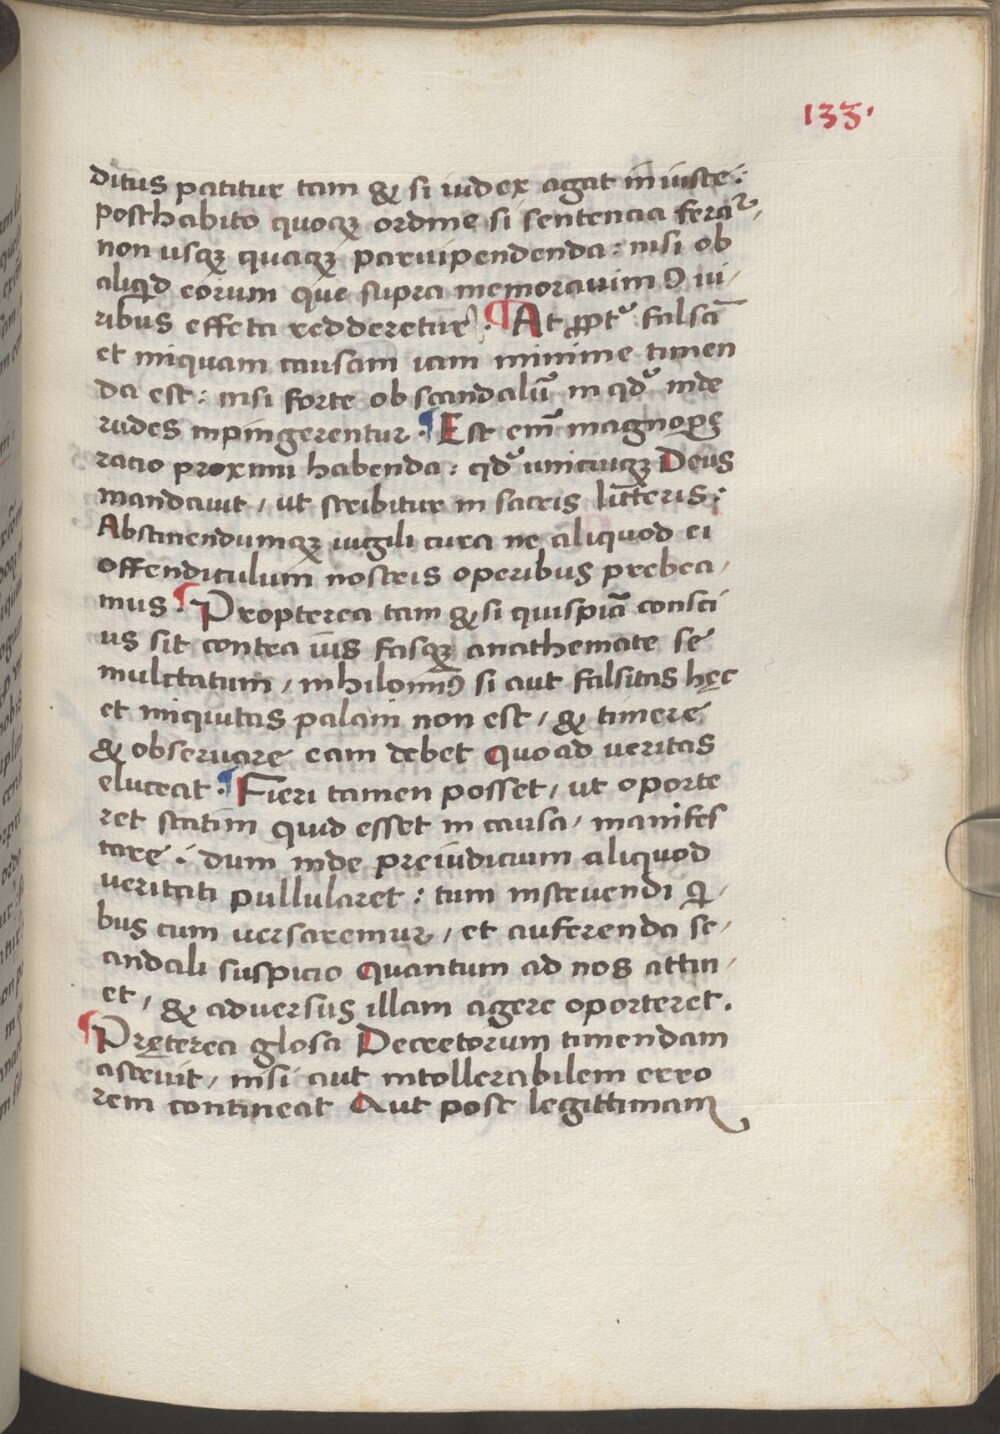 133.
ditus patitur tam & si iudex agat iniuste:
posthabito quoqꝫ ordine si sentencia feratᷣ,
non usqꝫ quaqꝫ parvipendenda: nisi ob
aliqͥd eorum que supra memoravimꝰ vi/
ribus effeta redderetur. ¶ At ꝓpt᷒ falsā
et iniquam causam iam minime timen
da est: nisi forte ob scandalū in qd᷒ inde
rudes inpingerentur. ¶ Est em̄ magnoꝑę
racio proximi habenda: qd᷒ unicuiqꝫ Deus
mandavit, ut scribitur in sacris litteris;
Abstinendumqꝫ iugili cura ne aliquod ei
offendiculum nostris operibus prebea,
mus. ¶ Propterea tam & si quispiā consci
us sit contra ius fasqꝫ anathemate se
mulctatum, nihilominꝰ si aut falsitas hęc
et iniquitas palam non est, & timere
& observare eam debet Quoad veritas
eluceat. ¶ Fieri tamen posset, ut oporte
ret statim quid esset in causa, manifes
tare: dum inde preiudicium aliquod
veritati pullularet: tum instruendi qͥ,
bus cum versaremur, et auferenda sc,
andali suspicio Quantum ad nos attin,
et, & adversus illam agere oporteret.
¶ Pręterea glosa Decretorum timendam
astruit, nisi aut intollerabilem erro
rem contineat Aut post legittimam